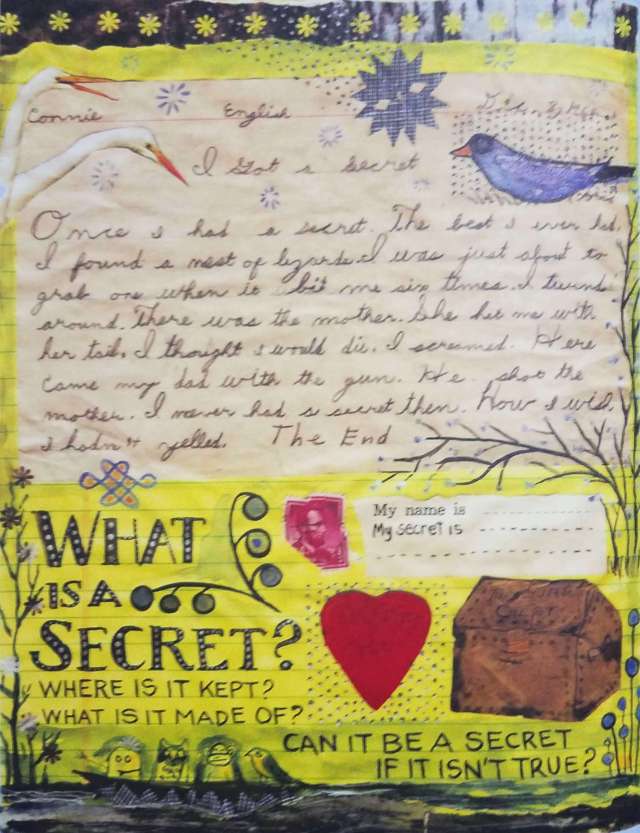 Connie English
I Got a Secret
Once I had a secret. The best I ever had.
I found a nest of lyzards. I was just about to
grab one when it bit me six times. I turnd
around. There was the mother. She het me with
her tail. I thought I would die. I screamed. Here
came my dad with the gun. He shot the
mother. I never had a secret then. How I wish
I hadn't yelled. The End
My name is
My secret is
WHAT
IS A
SECRET?
WHERE IS IT KEPT?
WHAT IS IT MADE OF?
CAN IT BE A SECRET
IF IT ISN'T TRUE?